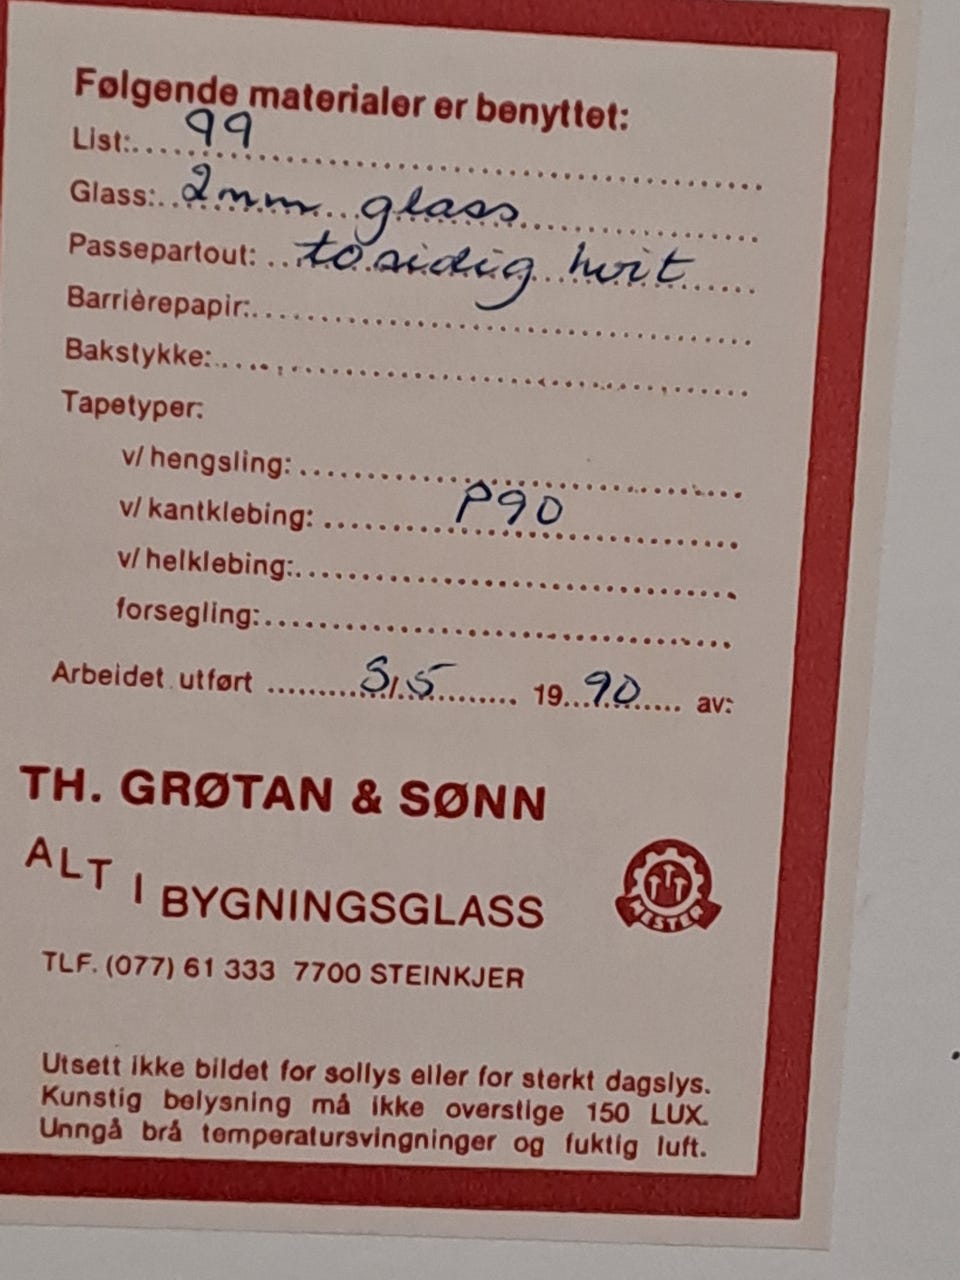 Følgende materialer er benyttet:
List: 99
Glass: 2mm glass
Passepartout: tosidig hvit
Barrièrepapir:
Bakstykke:
Tapetyper:
v/hengsling:
v/kantklebing: P90
v/helklebing:
forsegling:
Arbeidet utført 3/5 1990 av:
TH. GRØTAN & SØNN
ALT I BYGNINGSGLASS
MESTER
TLF. (077) 61 333 7700 STEINKJER
Utsett ikke bildet for sollys eller for sterkt dagslys.
Kunstig belysning må ikke overstige 150 LUX.
Unngå brå temperatursvingninger og fuktig luft.